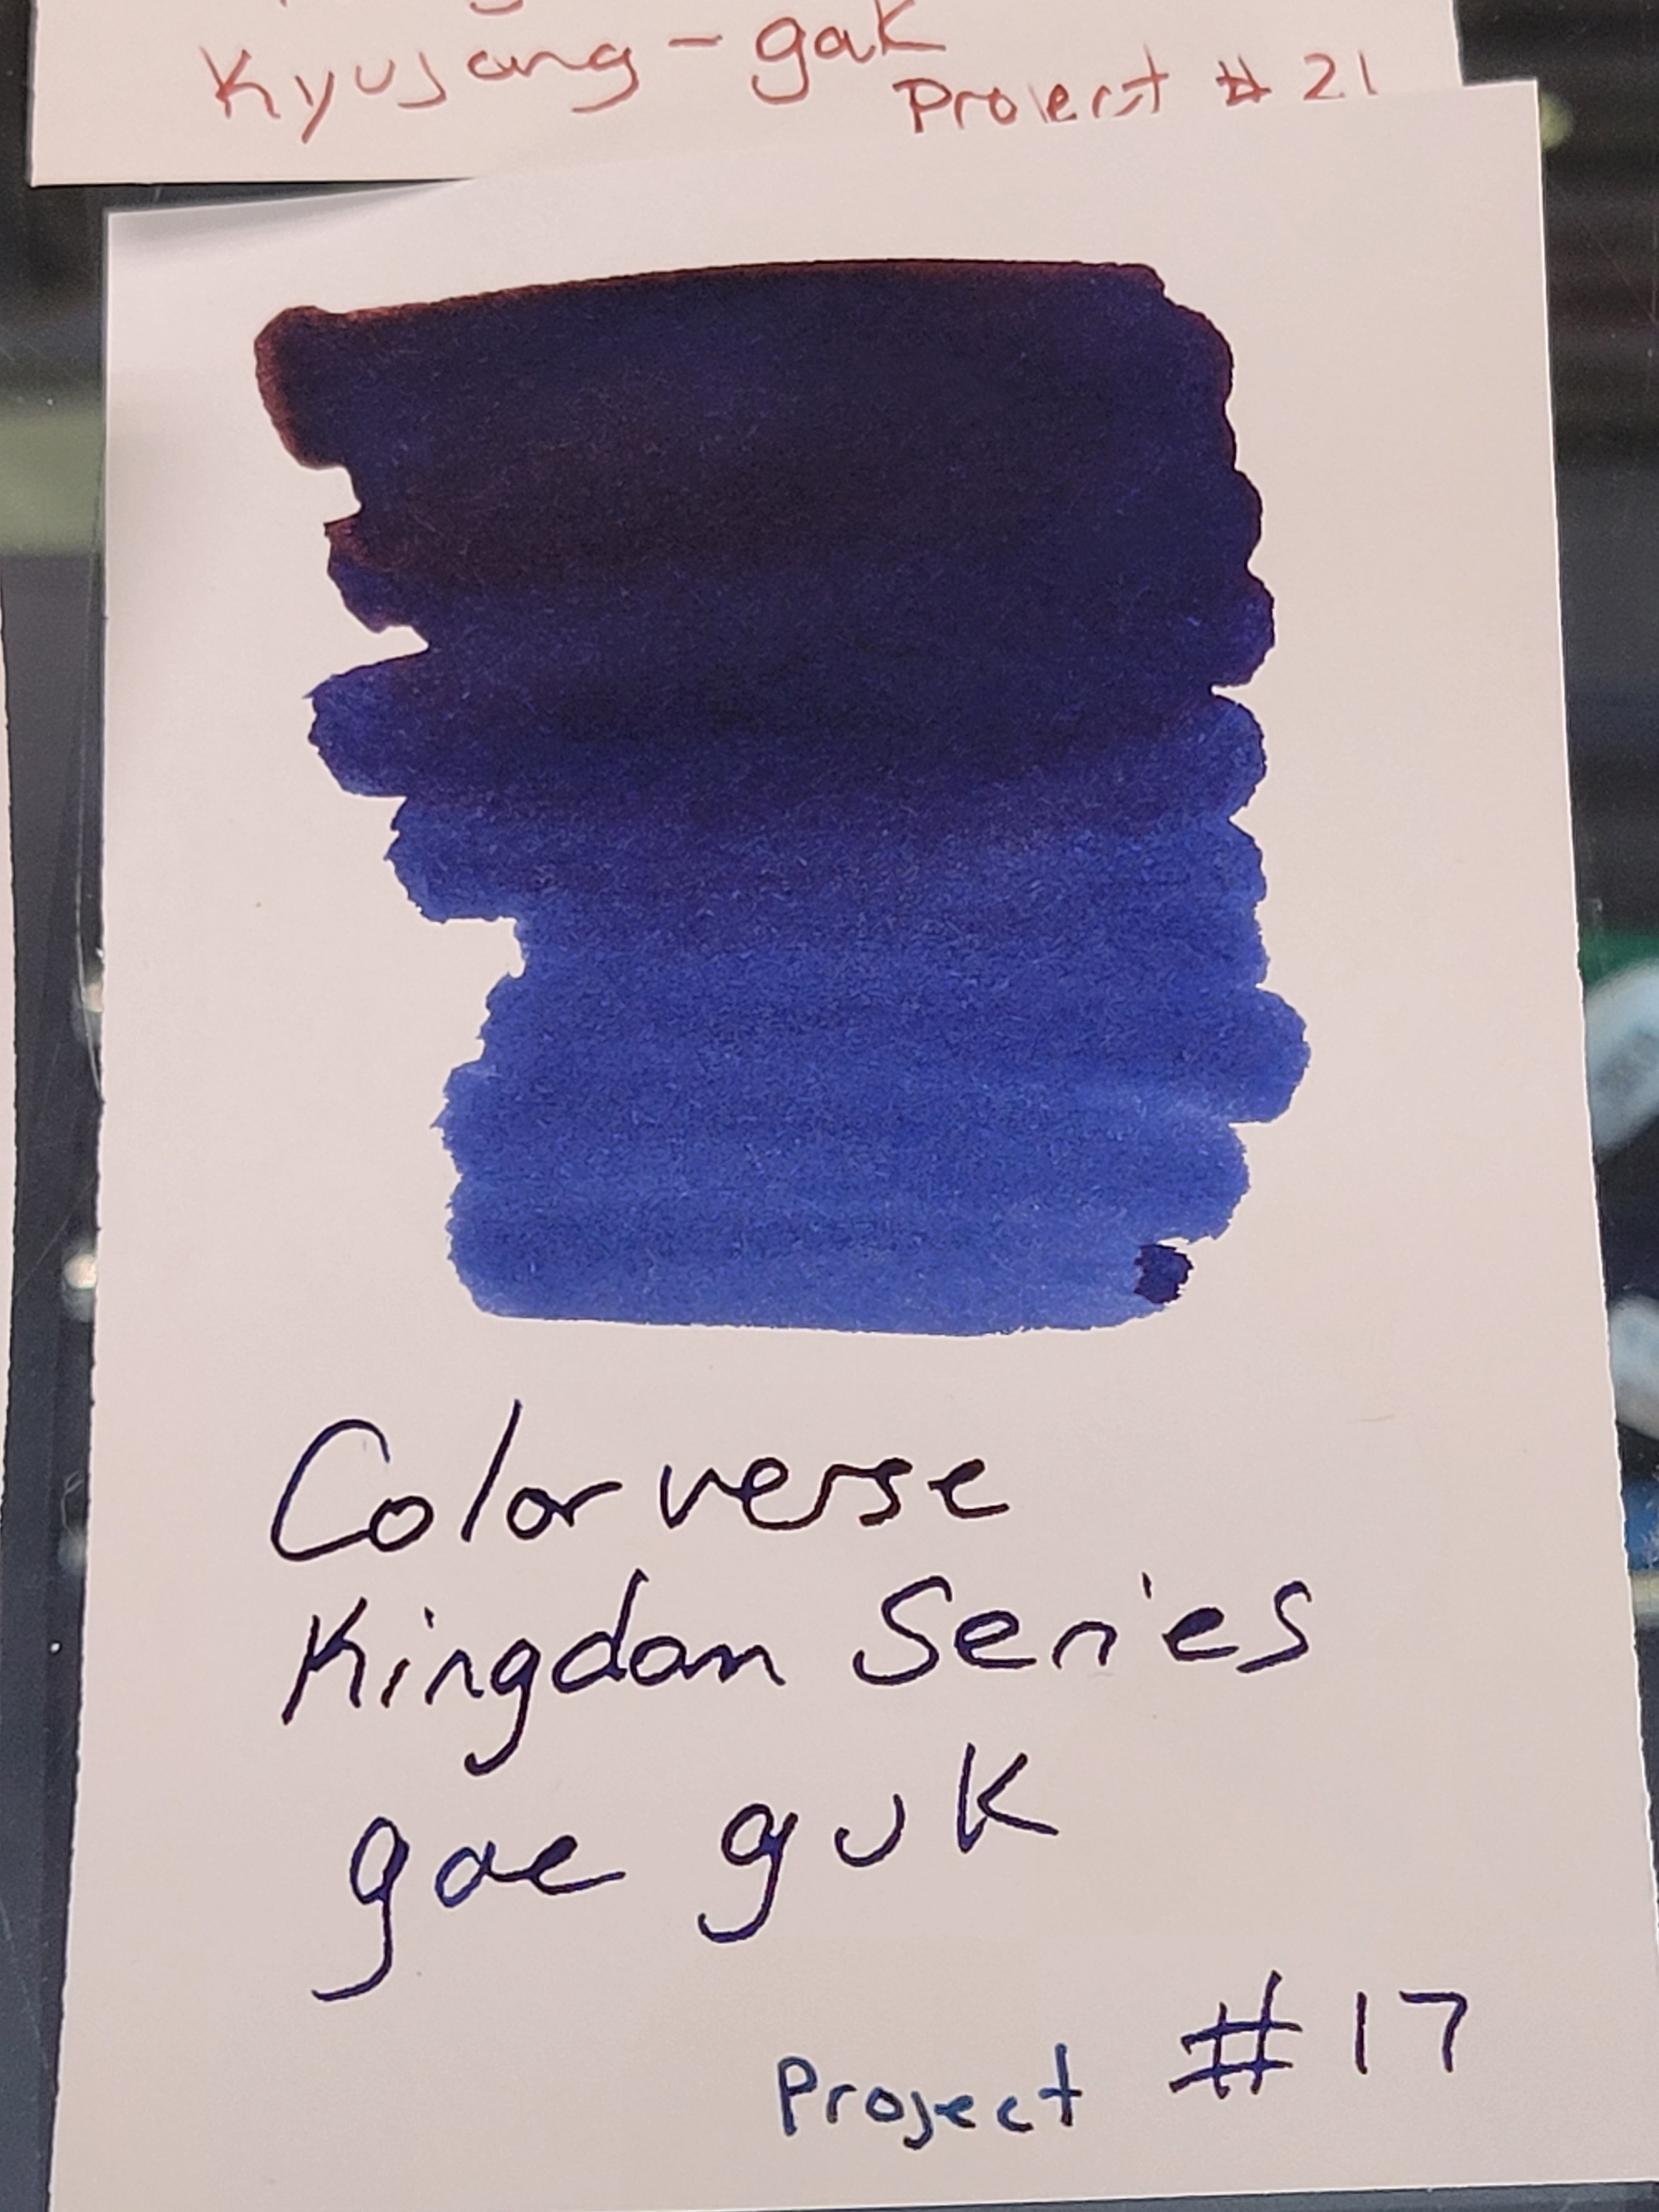 Kyujang-gak
Project #21
Colorverse
Kingdom Series
gae guk
Project #17